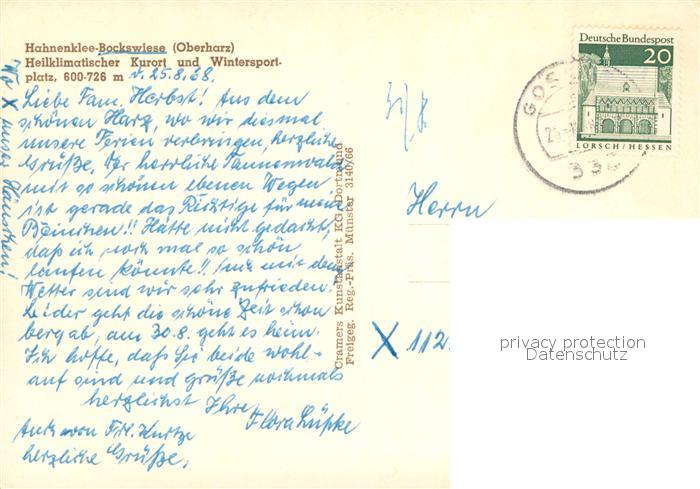 Hahnenklee-Bockswiese (Oberharz)
Heilklimatischer Kurort und Wintersport-
platz, 600-726 m
d. 25.8.68.
Liebe Fam. Herbst! Aus dem
schönen Harz, wo wir diesmal
unsere Ferien verbringen, herzliche
Grüße. Der herrliche Tannenwald
mit so schönen ebenen Wegen
ist gerade das Richtige für meine
Beinchen!! Hätte nicht gedacht,
daß ich noch mal so schön
laufen könnte!! Auch mit dem
Wetter sind wir sehr zufrieden.
Leider geht die schöne Zeit schon
bergab, am 30.8. geht es heim.
Ich hoffe, daß Sie beide wohl-
auf sind und grüße nochmals
herzlichst Ihre
Flora Lüpke
Auch von Frl. Kurtze
herzliche Grüße.
Wo X unser Häuschen!
Cramers Kunstanstalt KG, Dortmund
Freigeg. Reg.-Präs. Münster 3140/66
Deutsche Bundespost
20
LORSCH/HESSEN
GOS
338
Herrn
X 112.
privacy protection
Datenschutz